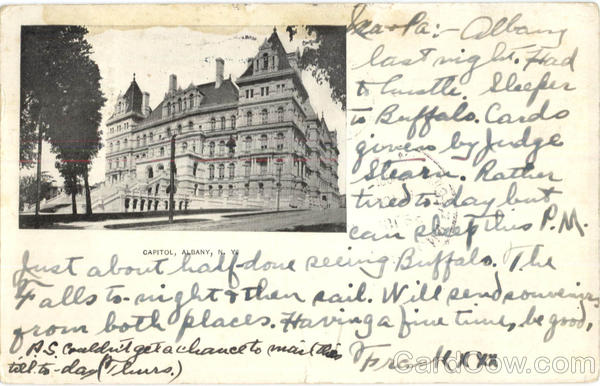 Dear Pa:- Albany
last night. Had
to hustle. Sleeper
to Buffalo. Cards
given by Judge
Stearn. Rather
tired to-day but
can sleep this P.M.
CAPITOL, ALBANY, N. Y.
Just about half-done seeing Buffalo. The
Falls to-night & then sail. Will send souvenirs
from both places. Having a fine time, be good,
Fred XXX
P.S. Couldn't get a chance to mail this
till to-day (Thurs.)
CardCow.com